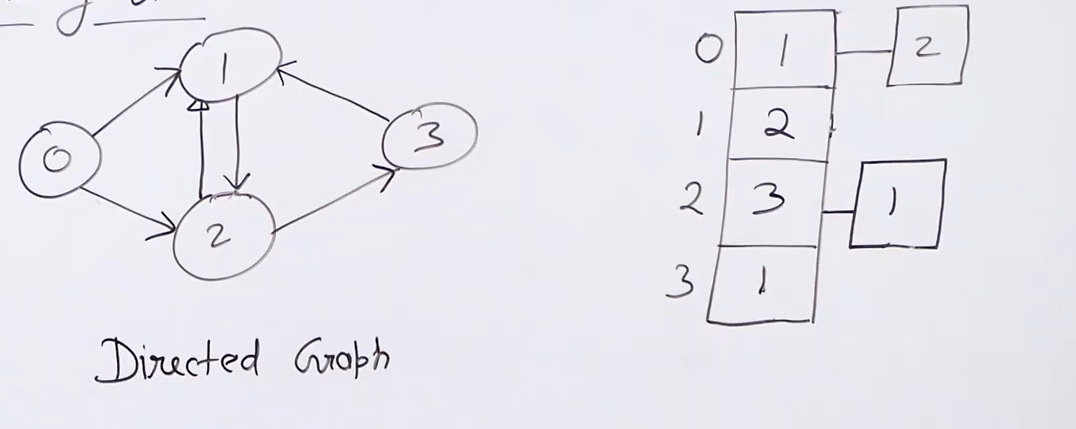 1
0
3
2
Directed Graph
0 1 2
1 2
2 3 1
3 1